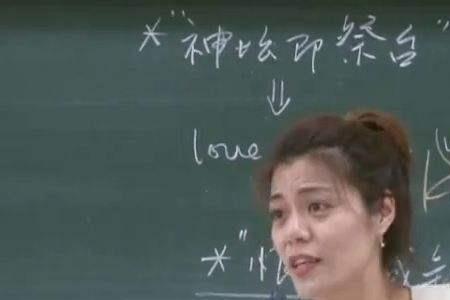 *"神坛即祭台"
⇓
love
*"